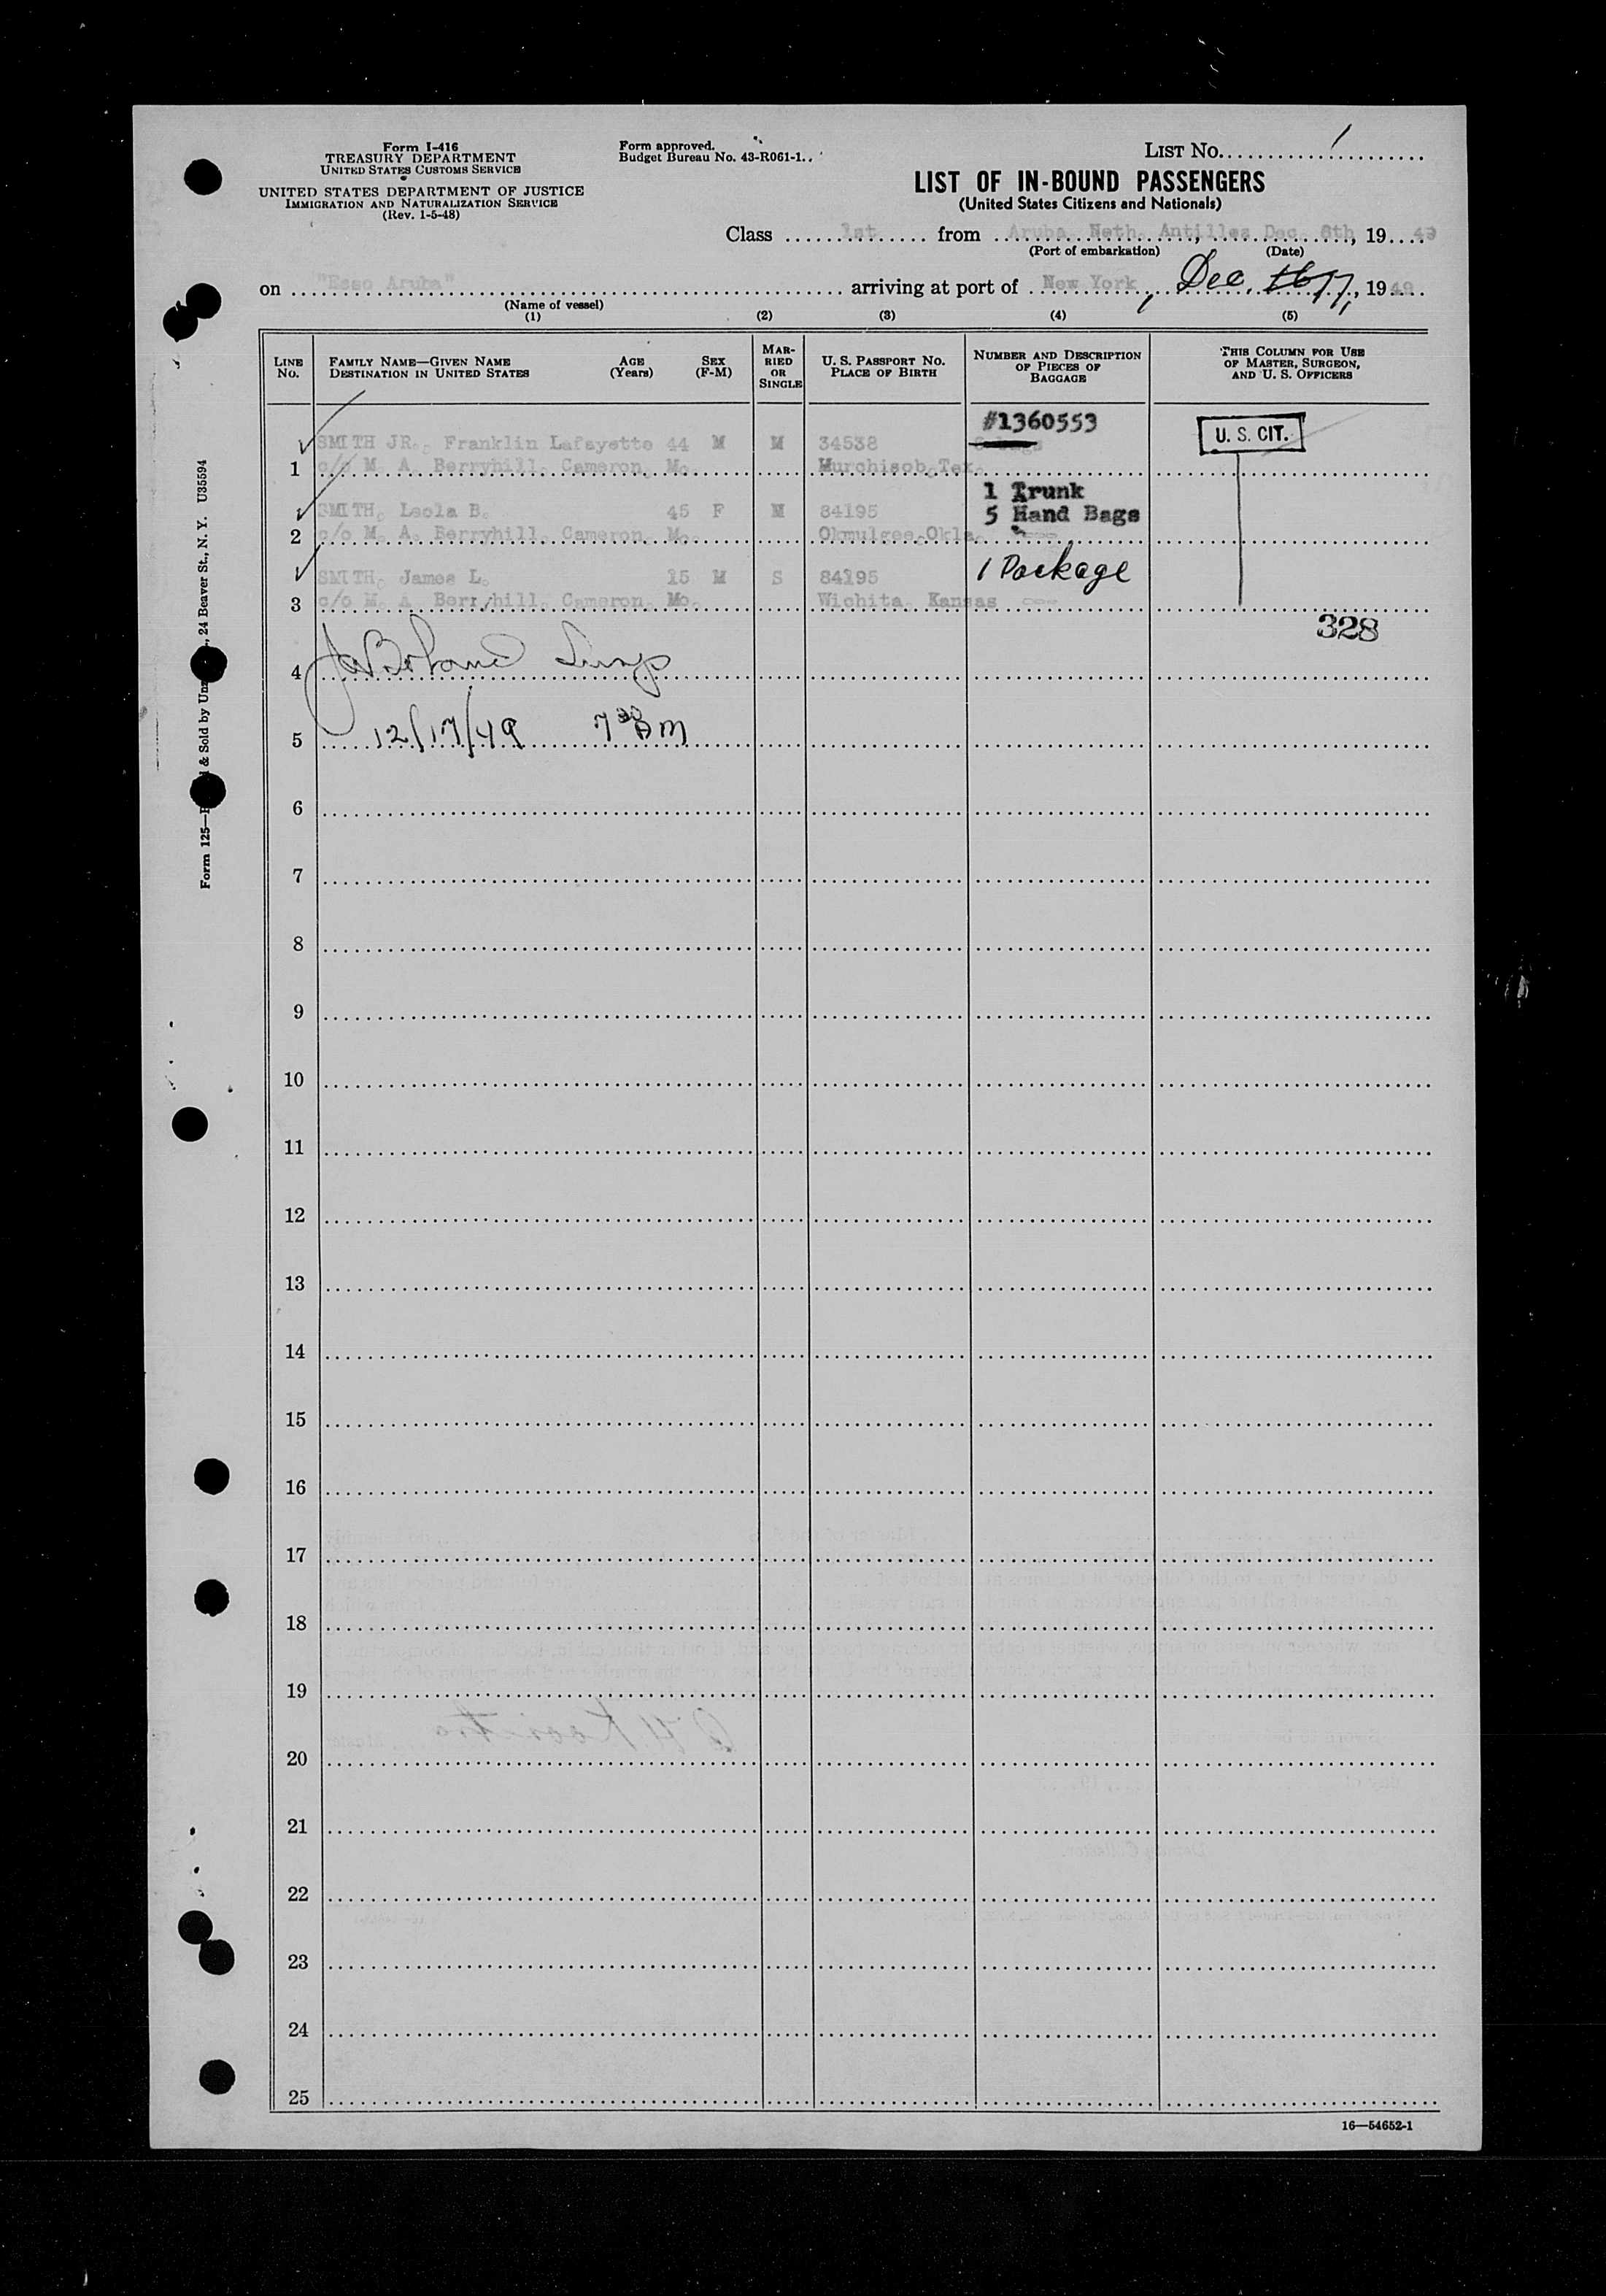 Form I-416
TREASURY DEPARTMENT
UNITED STATES CUSTOMS SERVICE
UNITED STATES DEPARTMENT OF JUSTICE
IMMIGRATION AND NATURALIZATION SERVICE
(Rev. 1-5-48)
Form approved.
Budget Bureau No. 43-R061-1.
LIST No. 1
LIST OF IN-BOUND PASSENGERS
(United States Citizens and Nationals)
Class 1st from Aruba, Neth. Antilles Dec. 8th, 1949
(Port of embarkation) (Date)
on "Esso Aruba" arriving at port of New York, Dec. 16 17, 1949
(Name of vessel)
(1) (2) (3) (4) (5)
LINE No.
FAMILY NAME—GIVEN NAME DESTINATION IN UNITED STATES
AGE (Years)
SEX (F-M)
MARRIED OR SINGLE
U. S. PASSPORT No. PLACE OF BIRTH
NUMBER AND DESCRIPTION OF PIECES OF BAGGAGE
THIS COLUMN FOR USE OF MASTER, SURGEON, AND U. S. OFFICERS
#1360553
SMITH JR., Franklin Lafayette 44 M M 34538 U. S. CIT.
1 c/o M. A. Berryhill, Cameron, Mo. Murchisob, Tex.
1 Trunk
SMITH, Leola B. 45 F M 84195 5 Hand Bags
2 c/o M. A. Berryhill, Cameron, Mo. Okmulgee, Okla.
SMITH, James L. 15 M S 84195 1 Package
3 c/o M. A. Berryhill, Cameron, Mo. Wichita, Kansas
328
4
5 12/17/49 7 30 AM
6
7
8
9
10
11
12
13
14
15
16
17
18
19
20
21
22
23
24
25
16—54652-1
Form 125— & Sold by , 24 Beaver St., N. Y. U35594